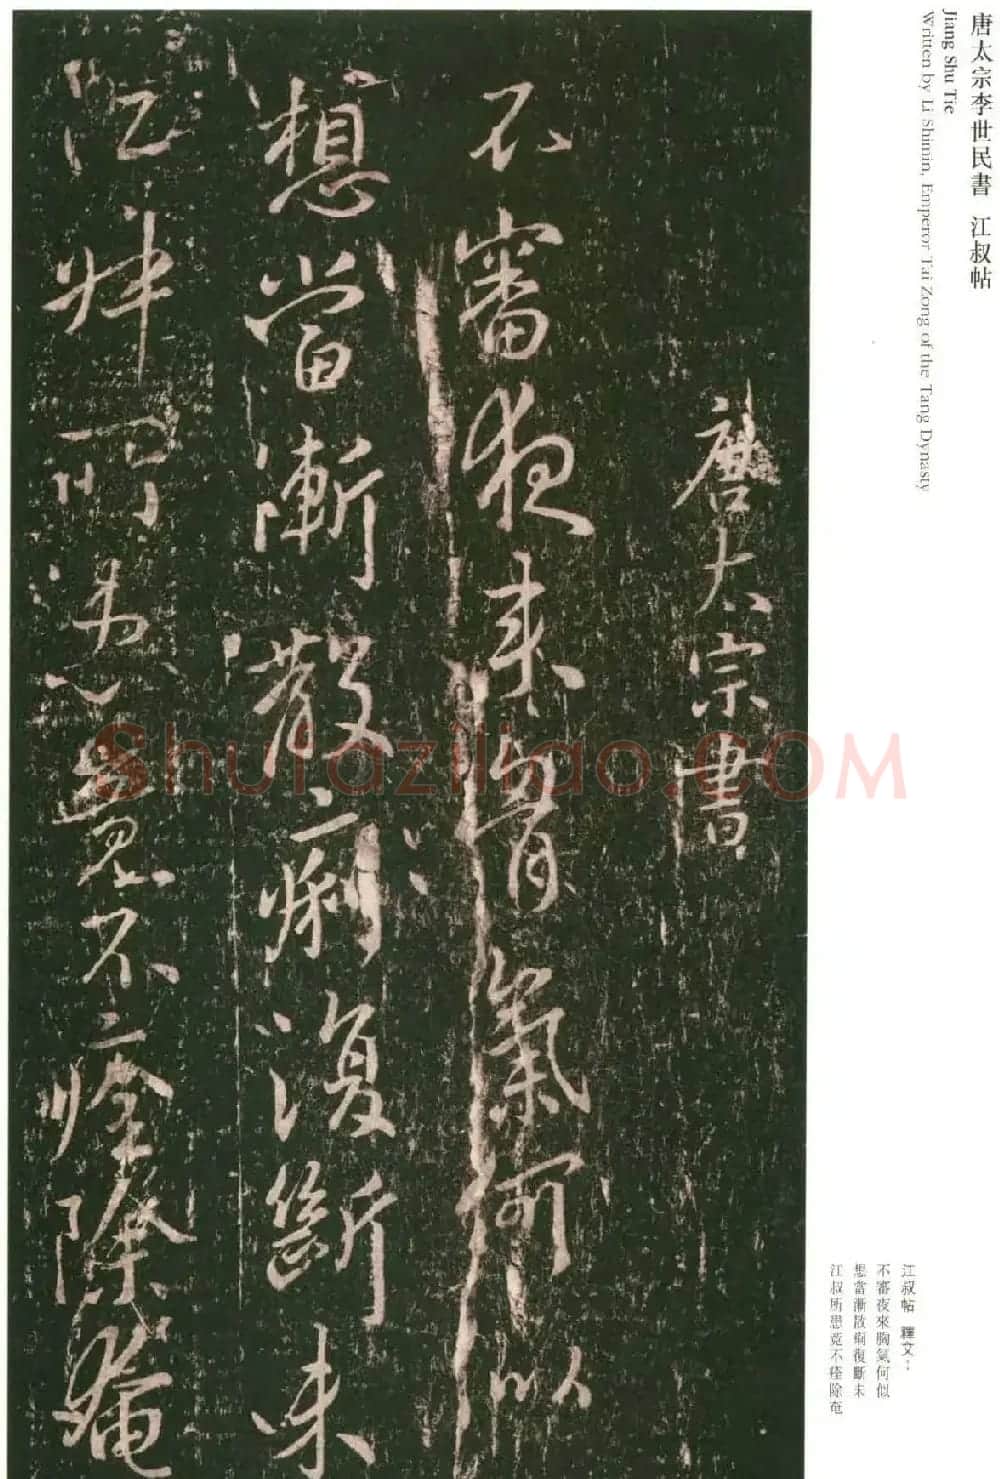 唐太宗李世民書 江叔帖
Jiang Shu Tie
Written by Li Shimin, Emperor Tai Zong of the Tang Dynasty
唐太宗書
不審夜來胸氣何似
想當漸散痢復斷未
江叔所患竟不痊除奄
江叔帖 釋文：
不審夜來胸氣何似
想當漸散痢復斷未
江叔所患竟不痊除奄
Shufaziliao.COM